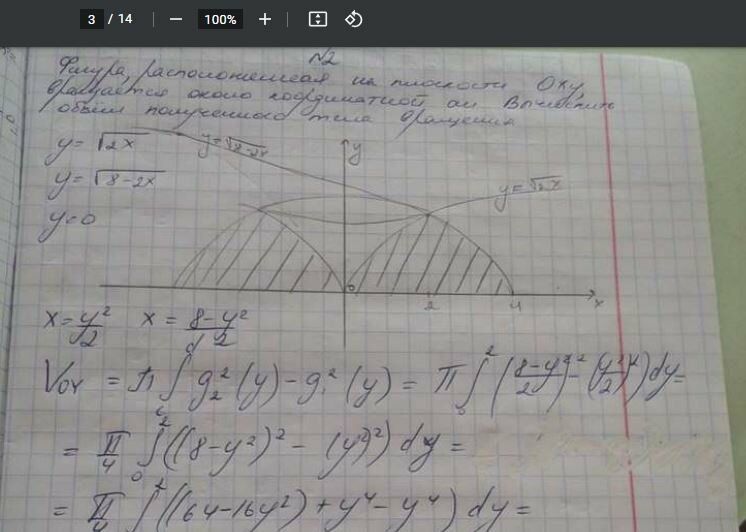 3 / 14 — 100% +
N2
Фигура, расположенная на плоскости Oxy,
вращается около координатной оси. Вычислить
объём полученного тела вращения
y = √2x
y = √8-2x
y = √8-2x
y=0
y
y = √2x
0
2
4
x
x = y²/2 x = 8-y²/2
Vоу = π∫ g₂²(y) - g₁²(y) = π∫₀² ((8-y²/2)² - (y²/2)²) dy =
= π/4 ∫₀² ((8-y²)² - (y²)²) dy =
= π/4 ∫ ((64-16y²) + y⁴ - y⁴) dy =